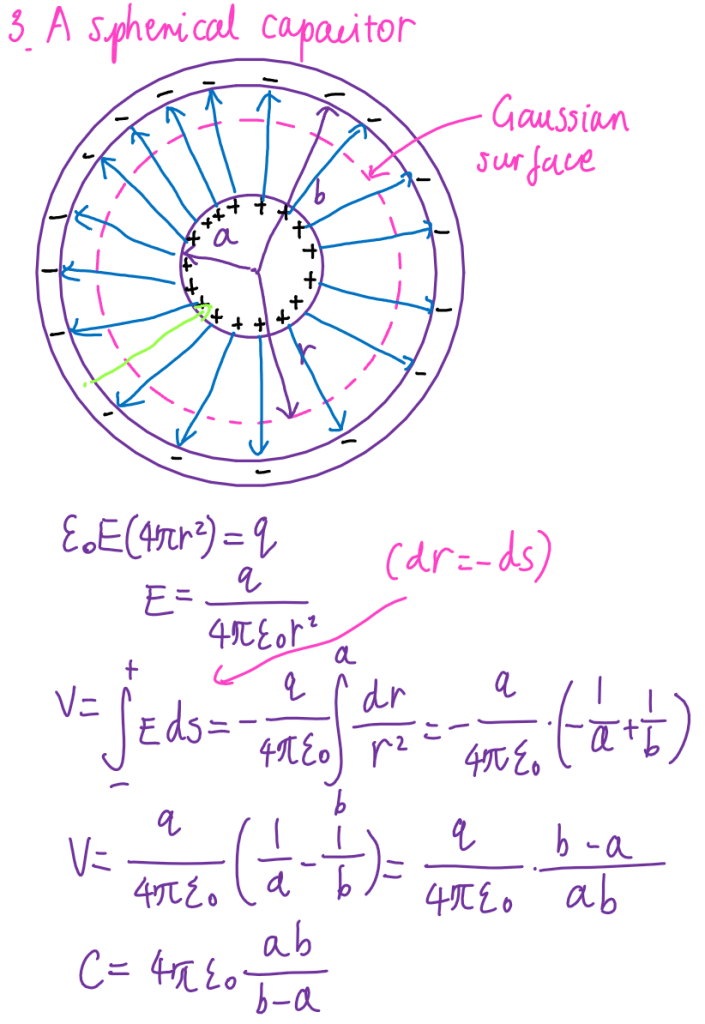 3. A spherical capacitor
Gaussian
surface
b
a
r
ε₀E(4πr²) = q
E = q / 4πε₀r²
(dr = -ds)
V = ∫₋⁺ E ds = - q/4πε₀ ∫_b^a dr/r² = - q/4πε₀ · (-1/a + 1/b)
V = q/4πε₀ (1/a - 1/b) = q/4πε₀ · b-a/ab
C = 4πε₀ ab/b-a